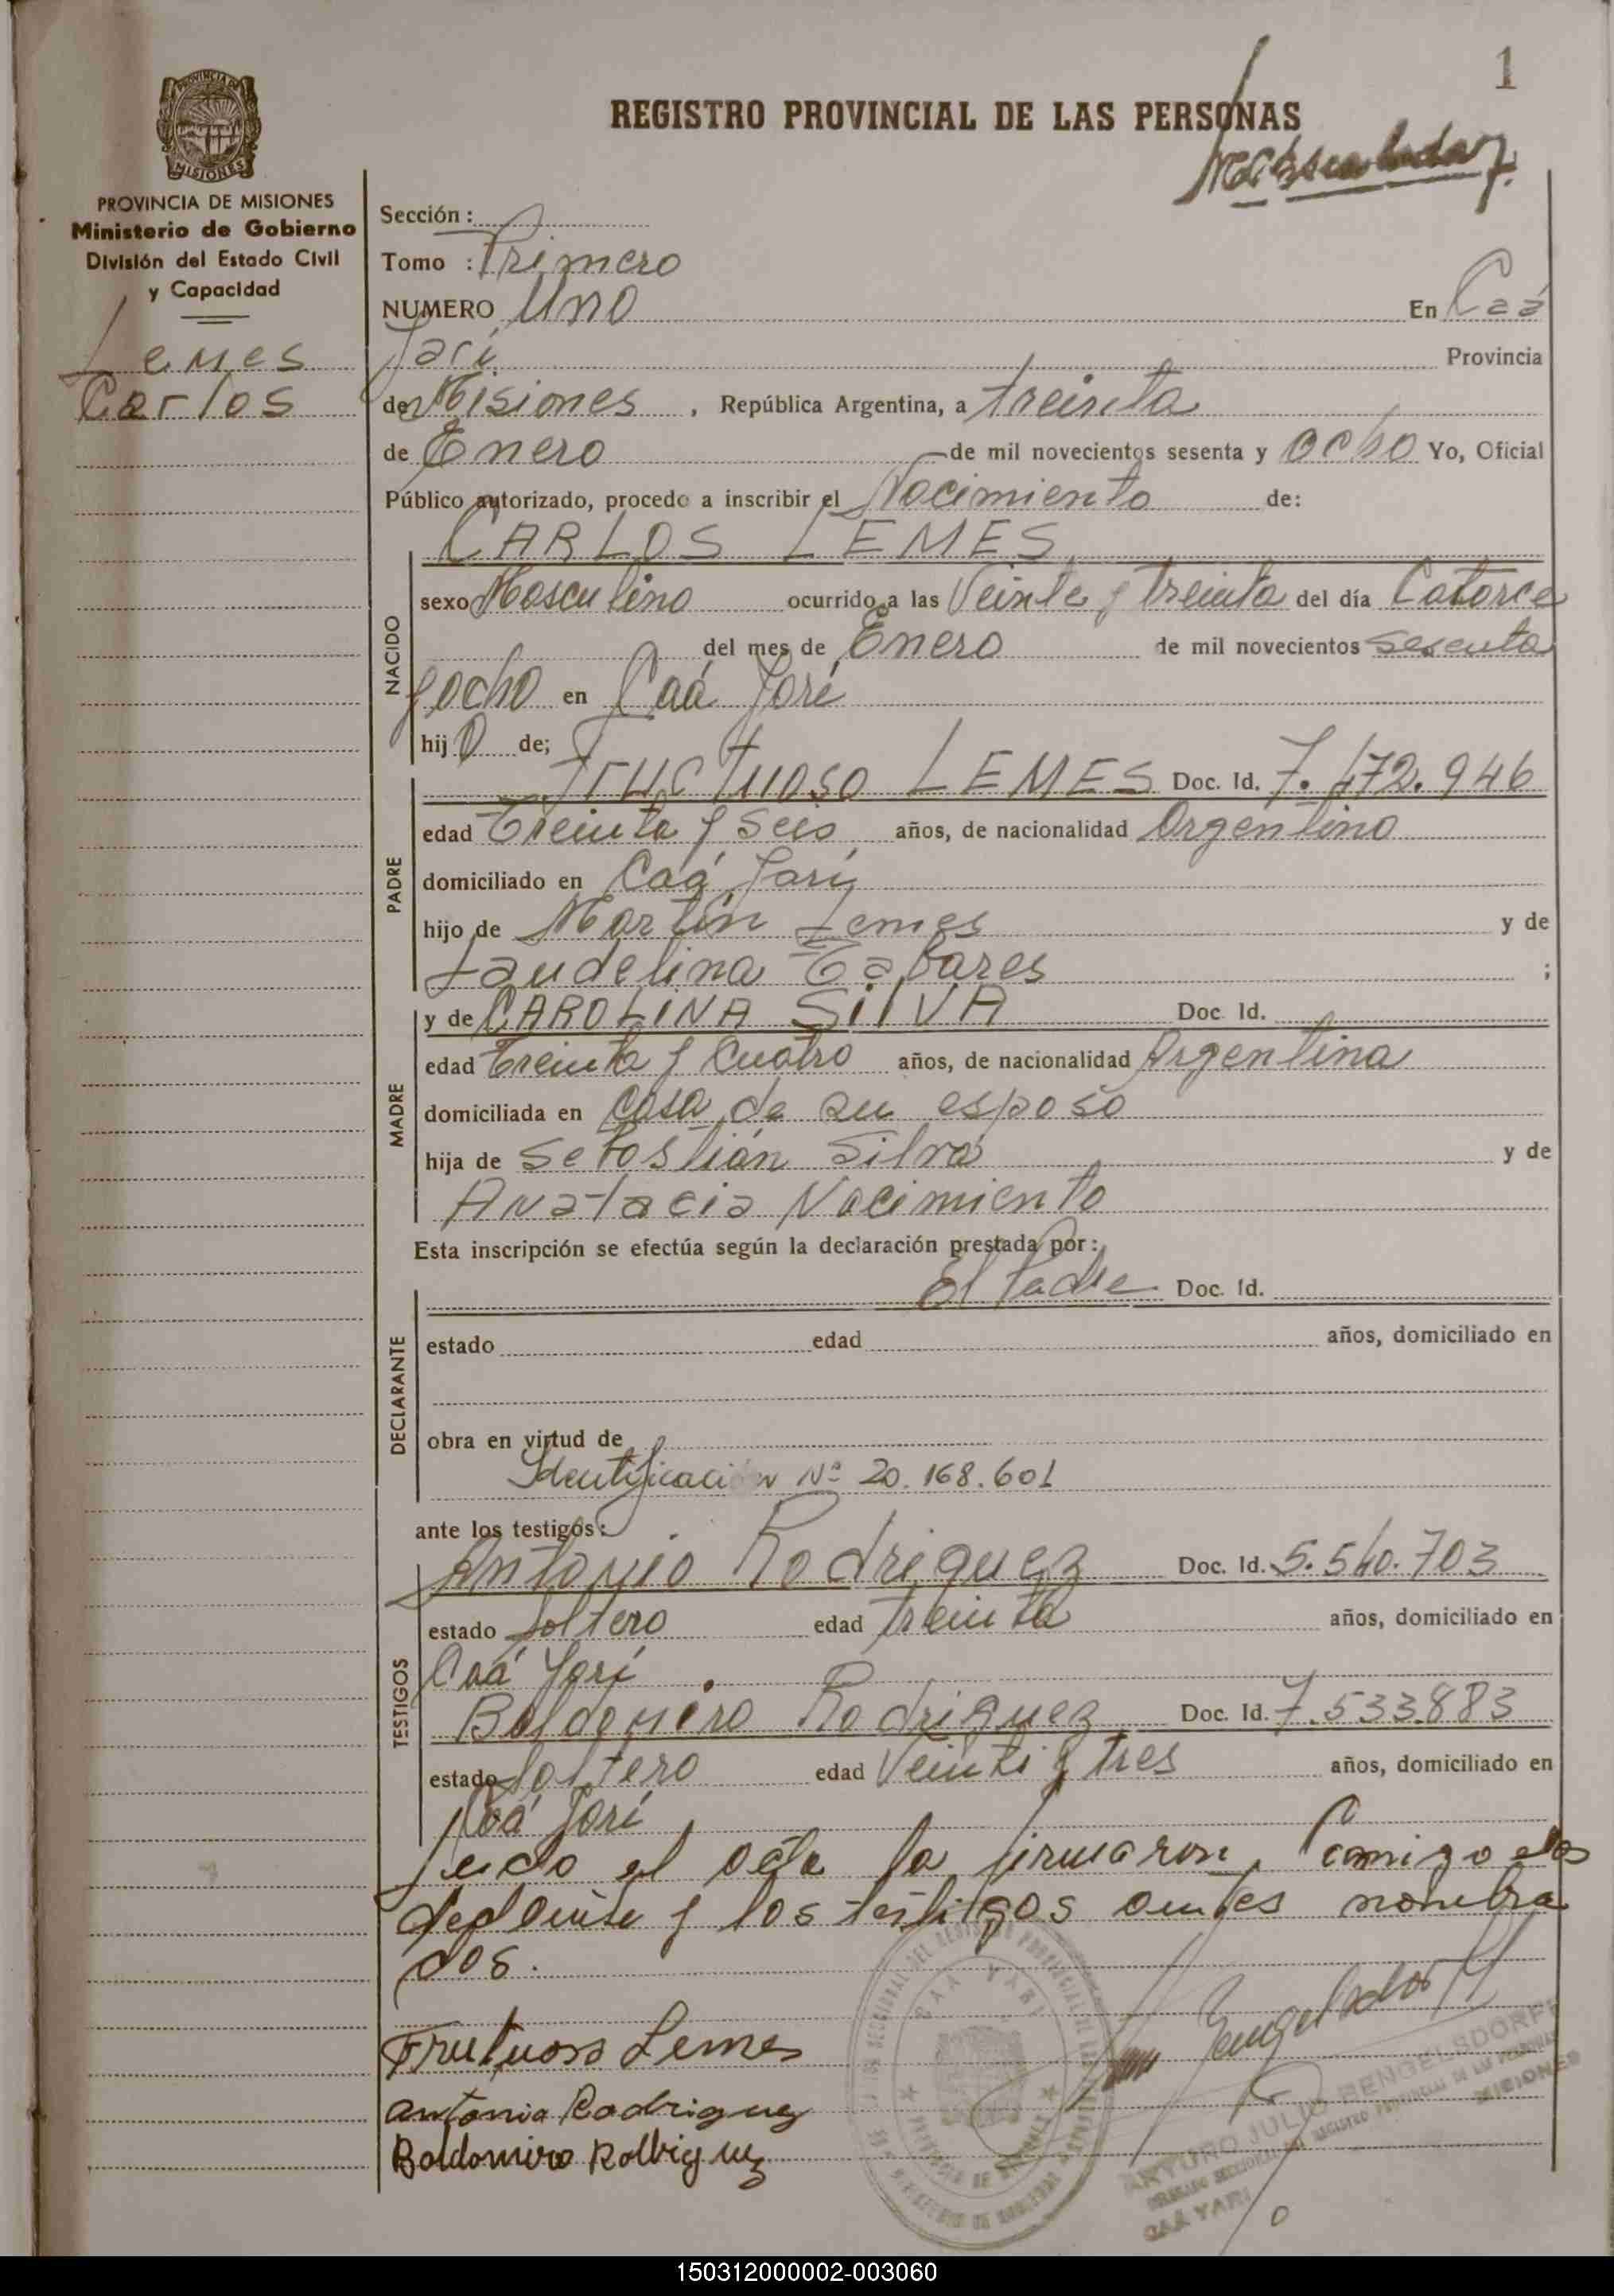 1
REGISTRO PROVINCIAL DE LAS PERSONAS
PROVINCIA DE MISIONES
MISIONES
PROVINCIA DE MISIONES
Ministerio de Gobierno
División del Estado Civil
y Capacidad
Lemes
Carlos
Sección :
Tomo : Primero
NUMERO Uno En Caá
Yarí Provincia
de Misiones . República Argentina, a treinta
de Enero de mil novecientos sesenta y ocho Yo, Oficial
Público autorizado, procedo a inscribir el Nacimiento de:
CARLOS LEMES
NACIDO
sexo Masculino ocurrido a las Veinte y Treinta del día Catorce
del mes de Enero de mil novecientos sesenta
y ocho en Caá Yarí
hij o de;
PADRE
FRUCTUOSO LEMES Doc. Id. 7.472.946
edad Treinta y Seis años, de nacionalidad Argentino
domiciliado en Caá Yarí
hijo de Martín Lemes y de
Laudelina Tabares ;
MADRE
y de CAROLINA SilVA Doc. Id.
edad Treinta y Cuatro años, de nacionalidad Argentina
domiciliada en Casa de su esposo
hija de Sebastián Silva y de
Anatacia Nacimiento
Esta inscripción se efectúa según la declaración prestada por:
DECLARANTE
El Padre Doc. Id.
estado edad años, domiciliado en
obra en virtud de
Identificación Nº 20.168.601
ante los testigos:
TESTIGOS
Antonio Rodriguez Doc. Id. 5.540.703
estado Soltero edad treinta años, domiciliado en
Caá Yarí
Baldomero Rodriguez Doc. Id. 7.533.883
estado Soltero edad Veinti y tres años, domiciliado en
Caá Yarí
Leido el acta la firmaron, Comigo el
y los testigos antes nombra
dos.
Frutuoso Lemes
Antonio Rodriguez
Baldomiro
CAA YARI
PROVINCIA DE MISIONES
ARTURO JULIO BENGELSDORFF
MISIONES
CAÁ YARI
150312000002-003060